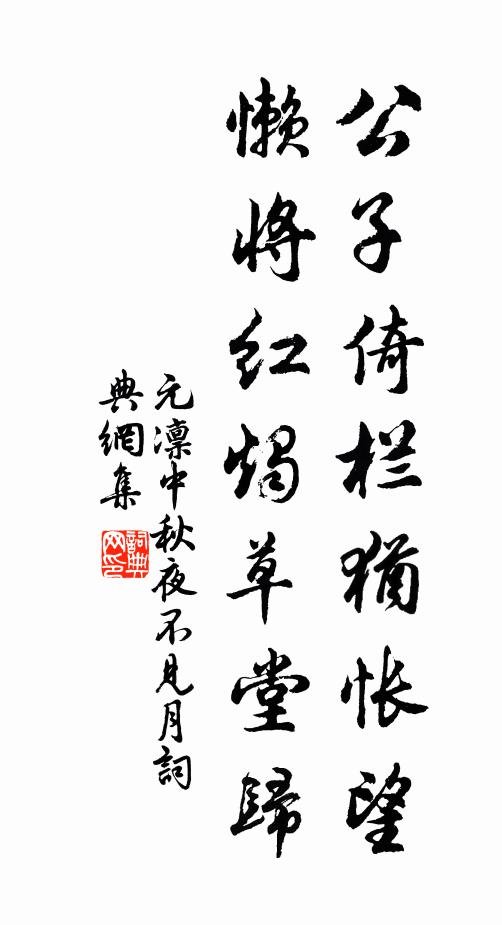 公子倚栏犹怅望
懒将红烛草堂歸
元凛中秋夜不见月詞
典網集
詞典
网印